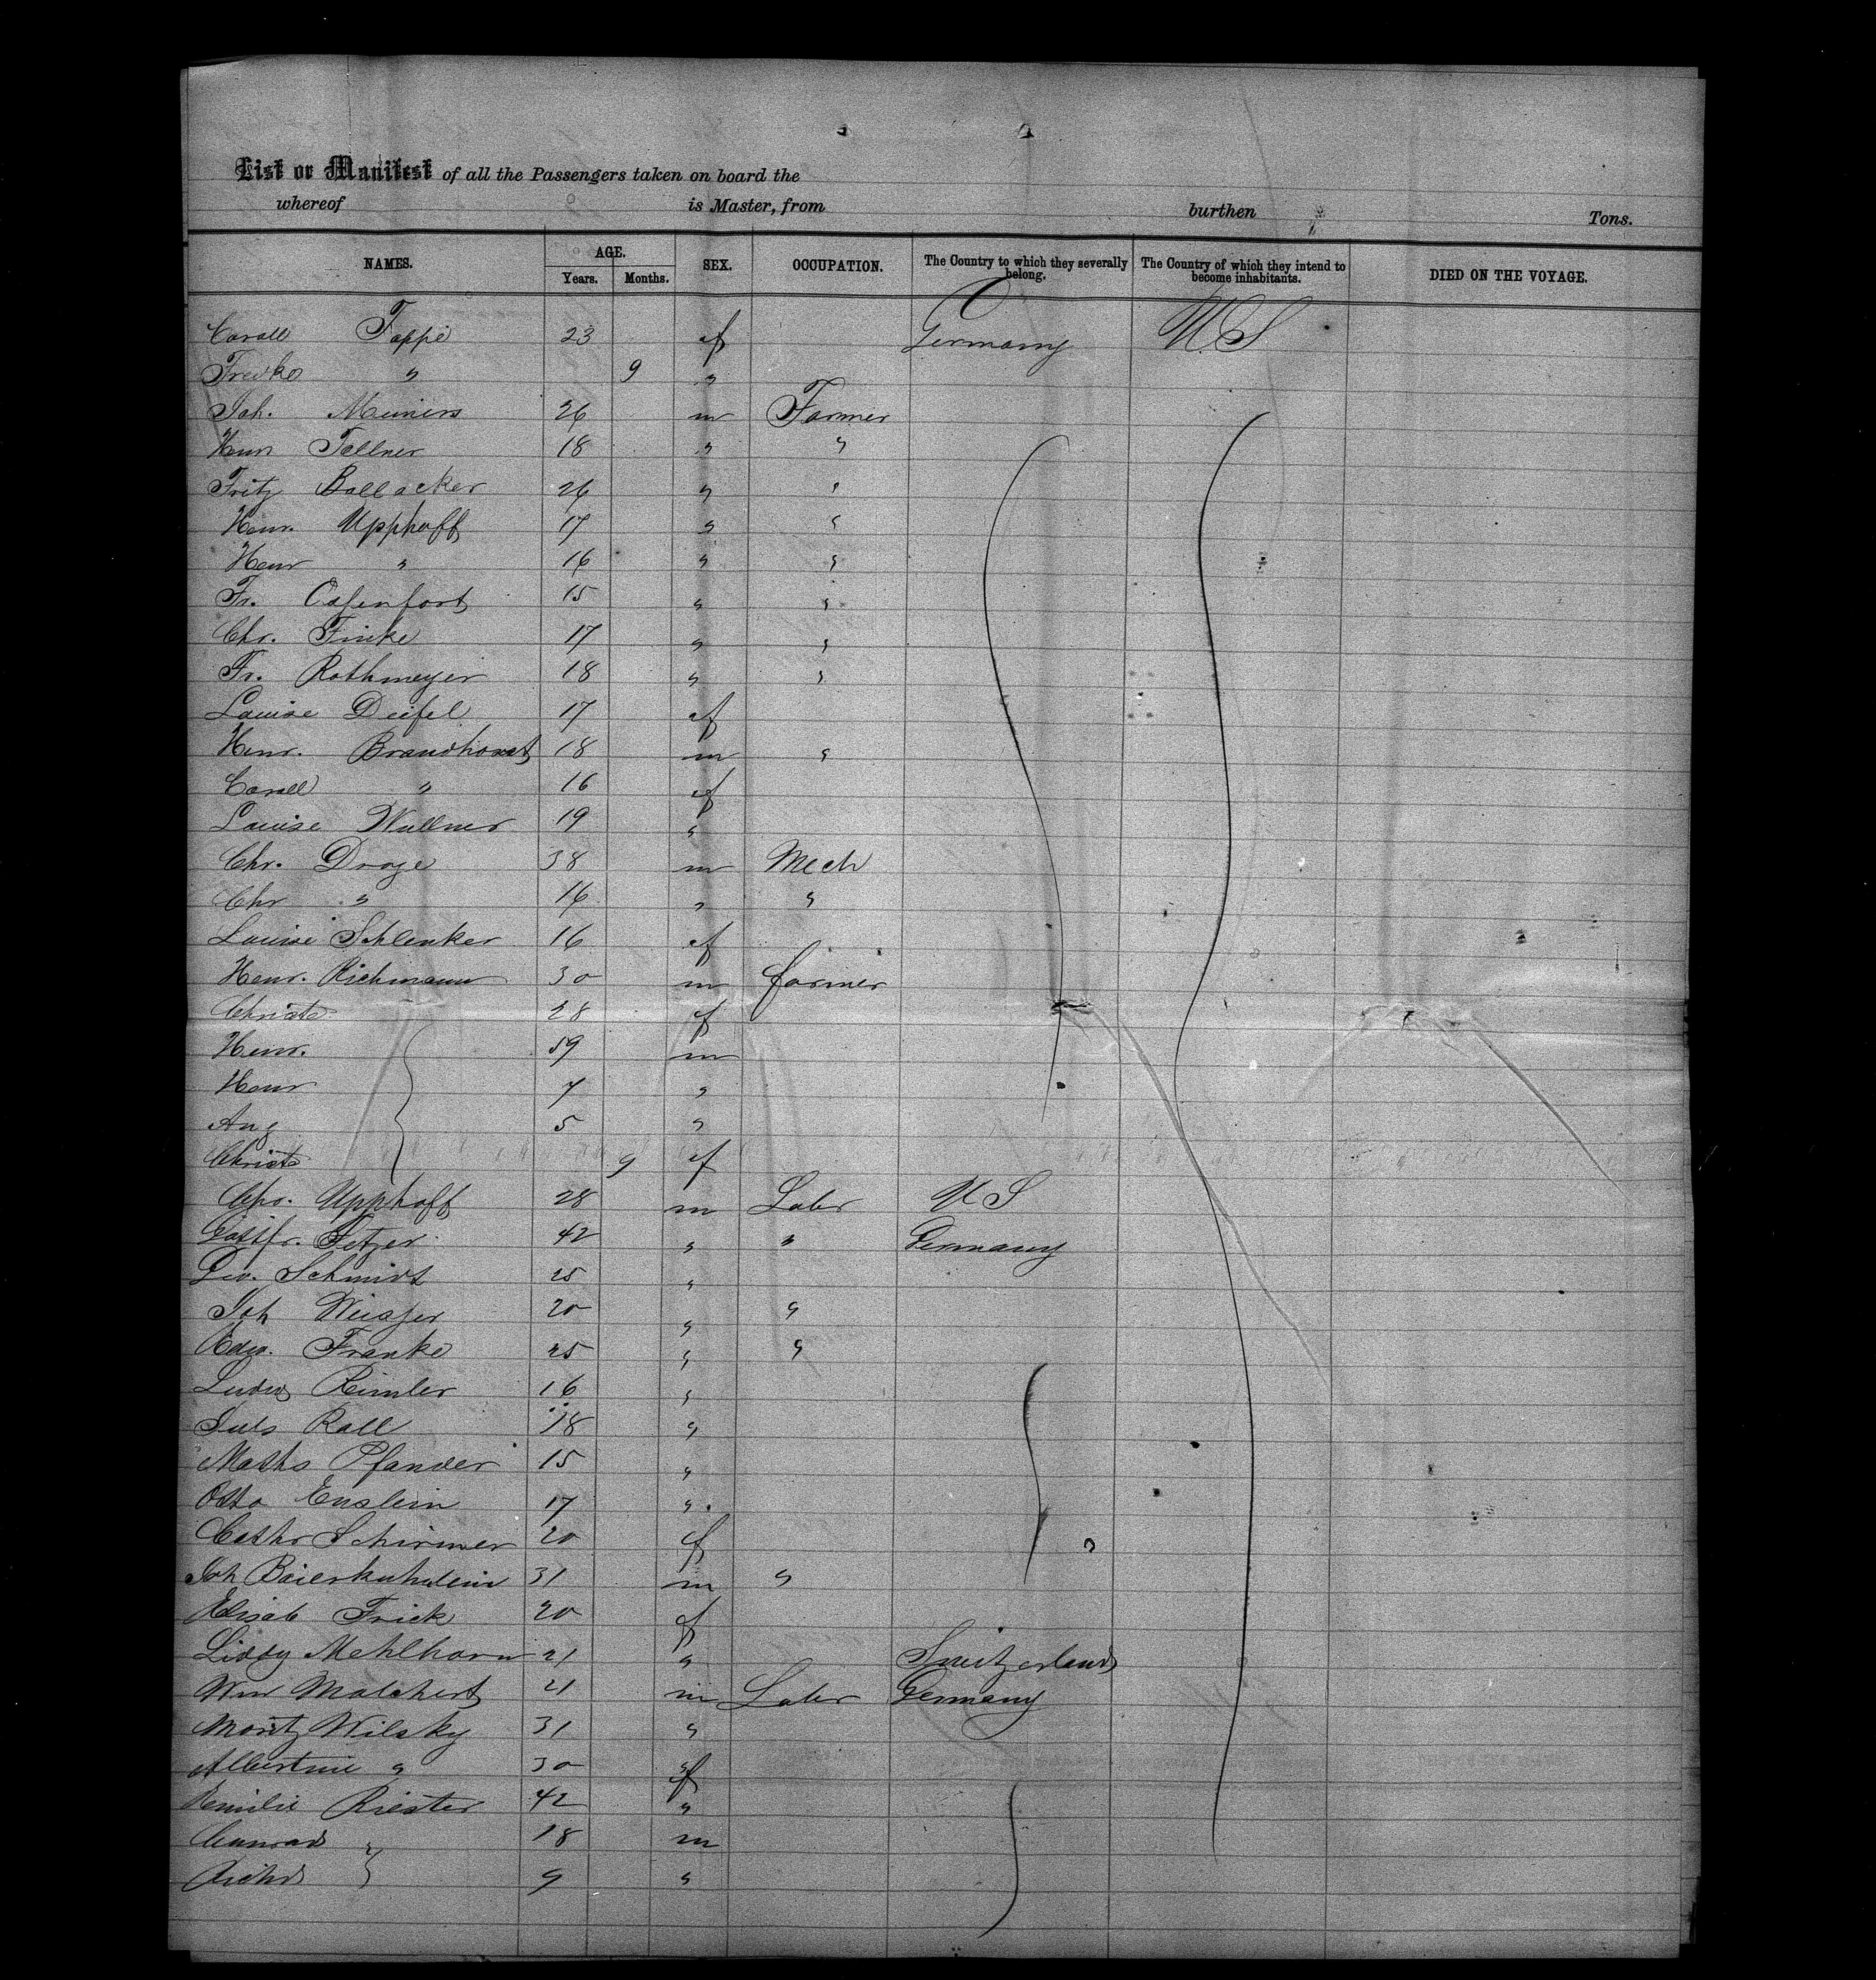 List or Manifest of all the Passengers taken on board the
whereof is Master, from burthen Tons.
NAMES. AGE. Years. Months. SEX. OCCUPATION. The Country to which they severally belong. The Country of which they intend to become inhabitants. DIED ON THE VOYAGE.
Tappe 23 f Germany U.S
" 9 "
Joh. Meiniers 26 m Farmer
Henr Tellner 18 " "
Fritz Ballacker 26 " "
Henr. Upphoff 17 " "
Henr " 16 " "
Fr. 15 " "
Chr. Finke 17 " "
Fr. Rothmeyer 18 " "
Louise Deifel 17 f
Henr. Brandhorst 18 m "
" 16 f
Louise Wullner 19 "
Chr. Droge 38 m Mech
Chr " 16 " "
Louise Schlenker 16 f
Henr. Richmann 30 m farmer
Christe 28 f
Henr. 59 m
Henr 7 "
Aug 5 "
Christe 9 f
Chr. Upphoff 28 m Labr U S
Gottfr. Setzer 42 " " Germany
Schmidt 25 "
Joh 20 " "
Franke 25 " "
Ludw Rimler 16 "
Juls Rall 18 "
Maths Pfander 15 "
Otto Enslein 17 "
Cathr Schirmer 20 f
Joh 31 m "
Elisab Frick 20 f
Liddy Mehlhorn 21 " Switzerland
Wm Malchert 21 m Labr Germany
Moritz Wilsky 31 "
Albertine " 30 f
Emilie Riester 42 "
Conrad " 18 m
Richd 9 "